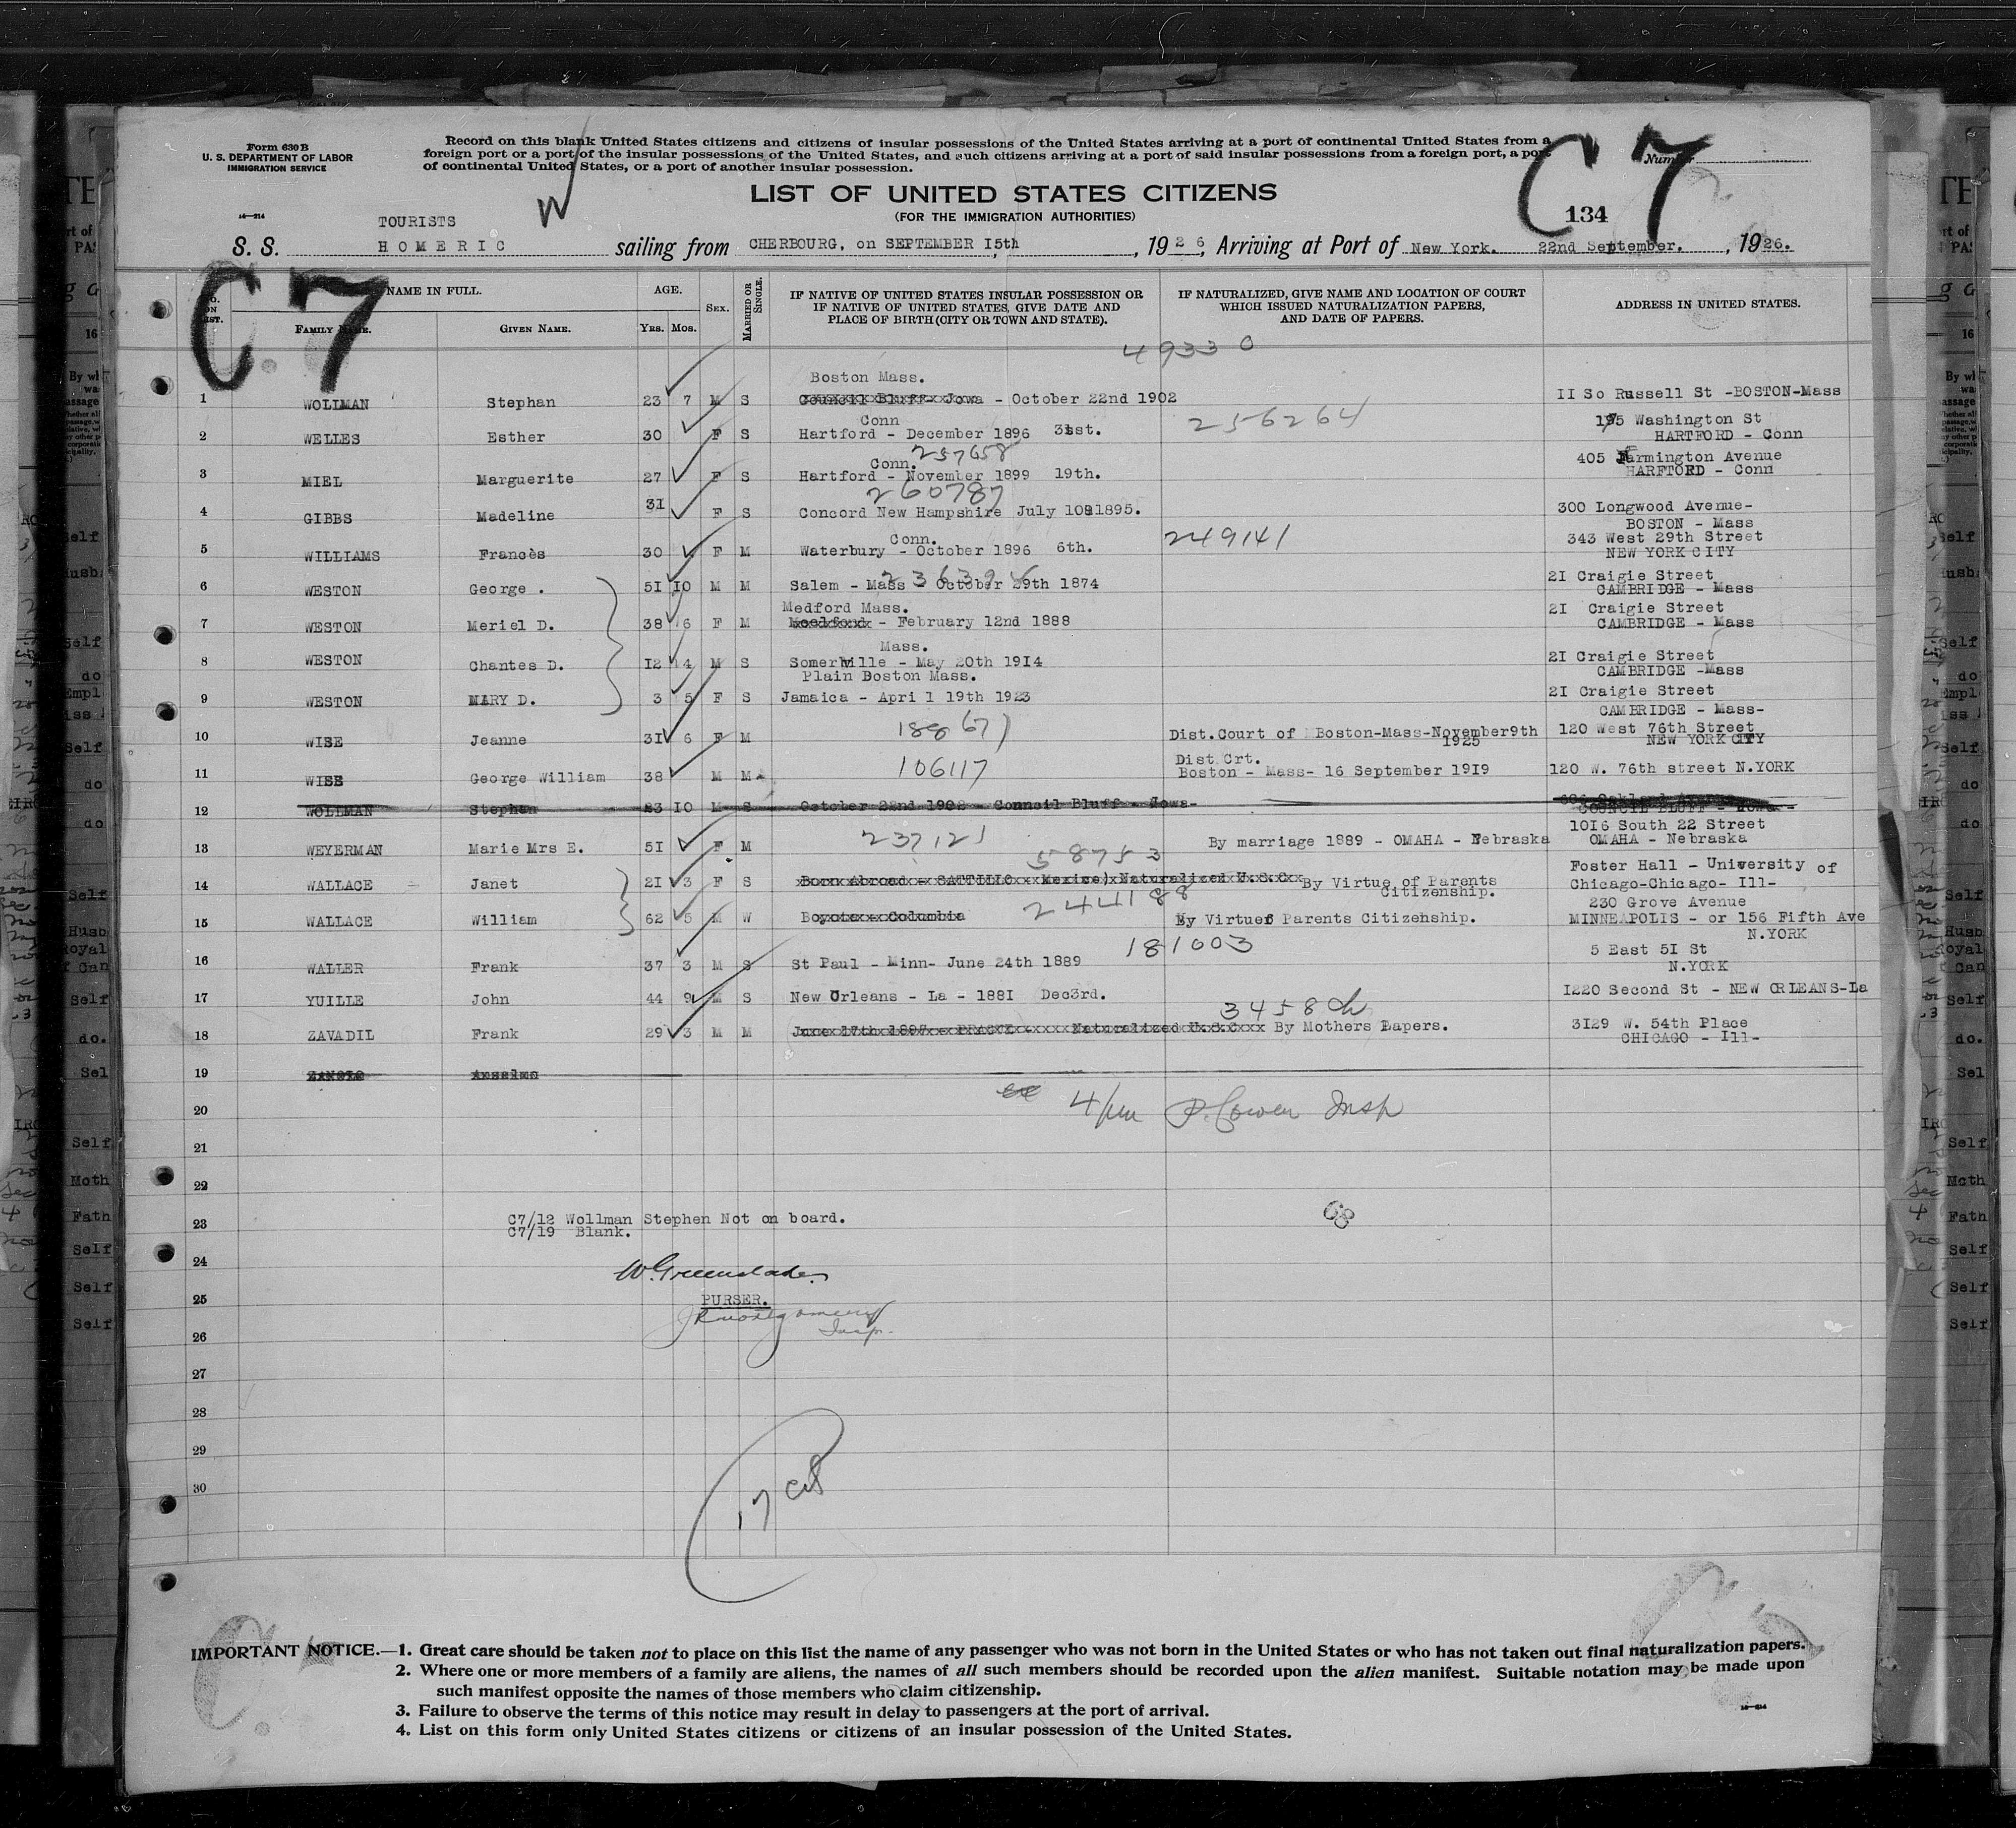 Form 630 B
U. S. DEPARTMENT OF LABOR
IMMIGRATION SERVICE
Record on this blank United States citizens and citizens of insular possessions of the United States arriving at a port of continental United States from a
foreign port or a port of the insular possessions of the United States, and such citizens arriving at a port of said insular possessions from a foreign port, a port
of continental United States, or a port of another insular possession.
C 7
Number
LIST OF UNITED STATES CITIZENS
(FOR THE IMMIGRATION AUTHORITIES)
134
14—214
W
TOURISTS
S. S. HOMERIC sailing from CHERBOURG, on SEPTEMBER I5th, 1926, Arriving at Port of New York. 22nd September., 1926.
C 7
No. ON LIST.
NAME IN FULL.
FAMILY NAME.
GIVEN NAME.
AGE.
YRS. MOS.
SEX.
MARRIED OR SINGLE.
IF NATIVE OF UNITED STATES INSULAR POSSESSION OR
IF NATIVE OF UNITED STATES, GIVE DATE AND
PLACE OF BIRTH (CITY OR TOWN AND STATE).
IF NATURALIZED, GIVE NAME AND LOCATION OF COURT
WHICH ISSUED NATURALIZATION PAPERS,
AND DATE OF PAPERS.
ADDRESS IN UNITED STATES.
49330
Boston Mass.
1 WOLLMAN Stephan 23 7 M S Council Bluff- Jowa - October 22nd 1902 II So Russell St -BOSTON-Mass
Conn 256264 195 Washington St
2 WELLES Esther 30 F S Hartford - December 1896 31st. HARTFORD - Conn
257658
Conn. 405 Farmington Avenue
3 MIEL Marguerite 27 F S Hartford - November 1899 19th. HARFTORD - Conn
260787
4 GIBBS Madeline 31 F S Concord New Hampshire July 10th1895. 300 Longwood Avenue-
BOSTON - Mass
Conn. 249141 343 West 29th Street
5 WILLIAMS Francès 30 F M Waterbury - October 1896 6th. NEW YORK CITY
6 WESTON George . 5I IO M M Salem - Mass October 29th 1874 2I Craigie Street
CAMBRIDGE - Mass
Medford Mass. 2I Craigie Street
7 WESTON Meriel D. 38 6 F M - February 12nd 1888 CAMBRIDGE - Mass
Mass.
8 WESTON Chantes D. I2 4 M S Somerville - May 20th 19I4 2I Craigie Street
CAMBRIDGE -Mass
Plain Boston Mass.
9 WESTON MARY D. 3 5 F S Jamaica - Apri l 19th 1923 2I Craigie Street
CAMBRIDGE - Mass-
18867)
10 WISE Jeanne 3I 6 F M Dist.Court of Boston-Mass-November9th 1925 120 West 76th Street
NEW YORK CITY
106117 Dist.Crt.
11 WISE George William 38 M M Boston - Mass- 16 September 1919 120 W. 76th street N.YORK
12 WOLLMAN Stephan 23 IO M S October 22nd 1902 - Council Bluff - Iowa-
COUNCIL BLUFF - Iowa -
237121 1016 South 22 Street
13 WEYERMAN Marie Mrs E. 5I F M By marriage 1889 - OMAHA - Nebraska OMAHA - Nebraska
58753 Foster Hall - University of
14 WALLACE Janet 2I 3 F S Born Abroad - SATTILLO - Mexico) Naturalized U.S.C. By Virtue of Parents Citizenship. Chicago-Chicago- Ill-
244188 230 Grove Avenue
15 WALLACE William 62 5 M W Boyota - Columbia By Virtue of Parents Citizenship. MINNEAPOLIS - or 156 Fifth Ave
N.YORK
181003 5 East 5I St
16 WALLER Frank 37 3 M S St Paul - Minn- June 24th 1889 N.YORK
17 YUILLE John 44 9 M S New Orleans - La - 188I Dec3rd. I220 Second St - NEW ORLEANS-La
3458
18 ZAVADIL Frank 29 3 M M June 17th 1897 - PRAGUE - Naturalized U.S.C. By Mothers Papers. 3I29 W. 54th Place
CHICAGO - Ill-
19 Anselmo
20
Insp
21
22
23 C7/12 Wollman Stephen Not on board.
C7/19 Blank.
24
W. Greenslade.
25 PURSER.
Insp.
26
27
28
29
30
17
IMPORTANT NOTICE.—1. Great care should be taken not to place on this list the name of any passenger who was not born in the United States or who has not taken out final naturalization papers.
2. Where one or more members of a family are aliens, the names of all such members should be recorded upon the alien manifest. Suitable notation may be made upon
such manifest opposite the names of those members who claim citizenship.
3. Failure to observe the terms of this notice may result in delay to passengers at the port of arrival.
4. List on this form only United States citizens or citizens of an insular possession of the United States.
14—214